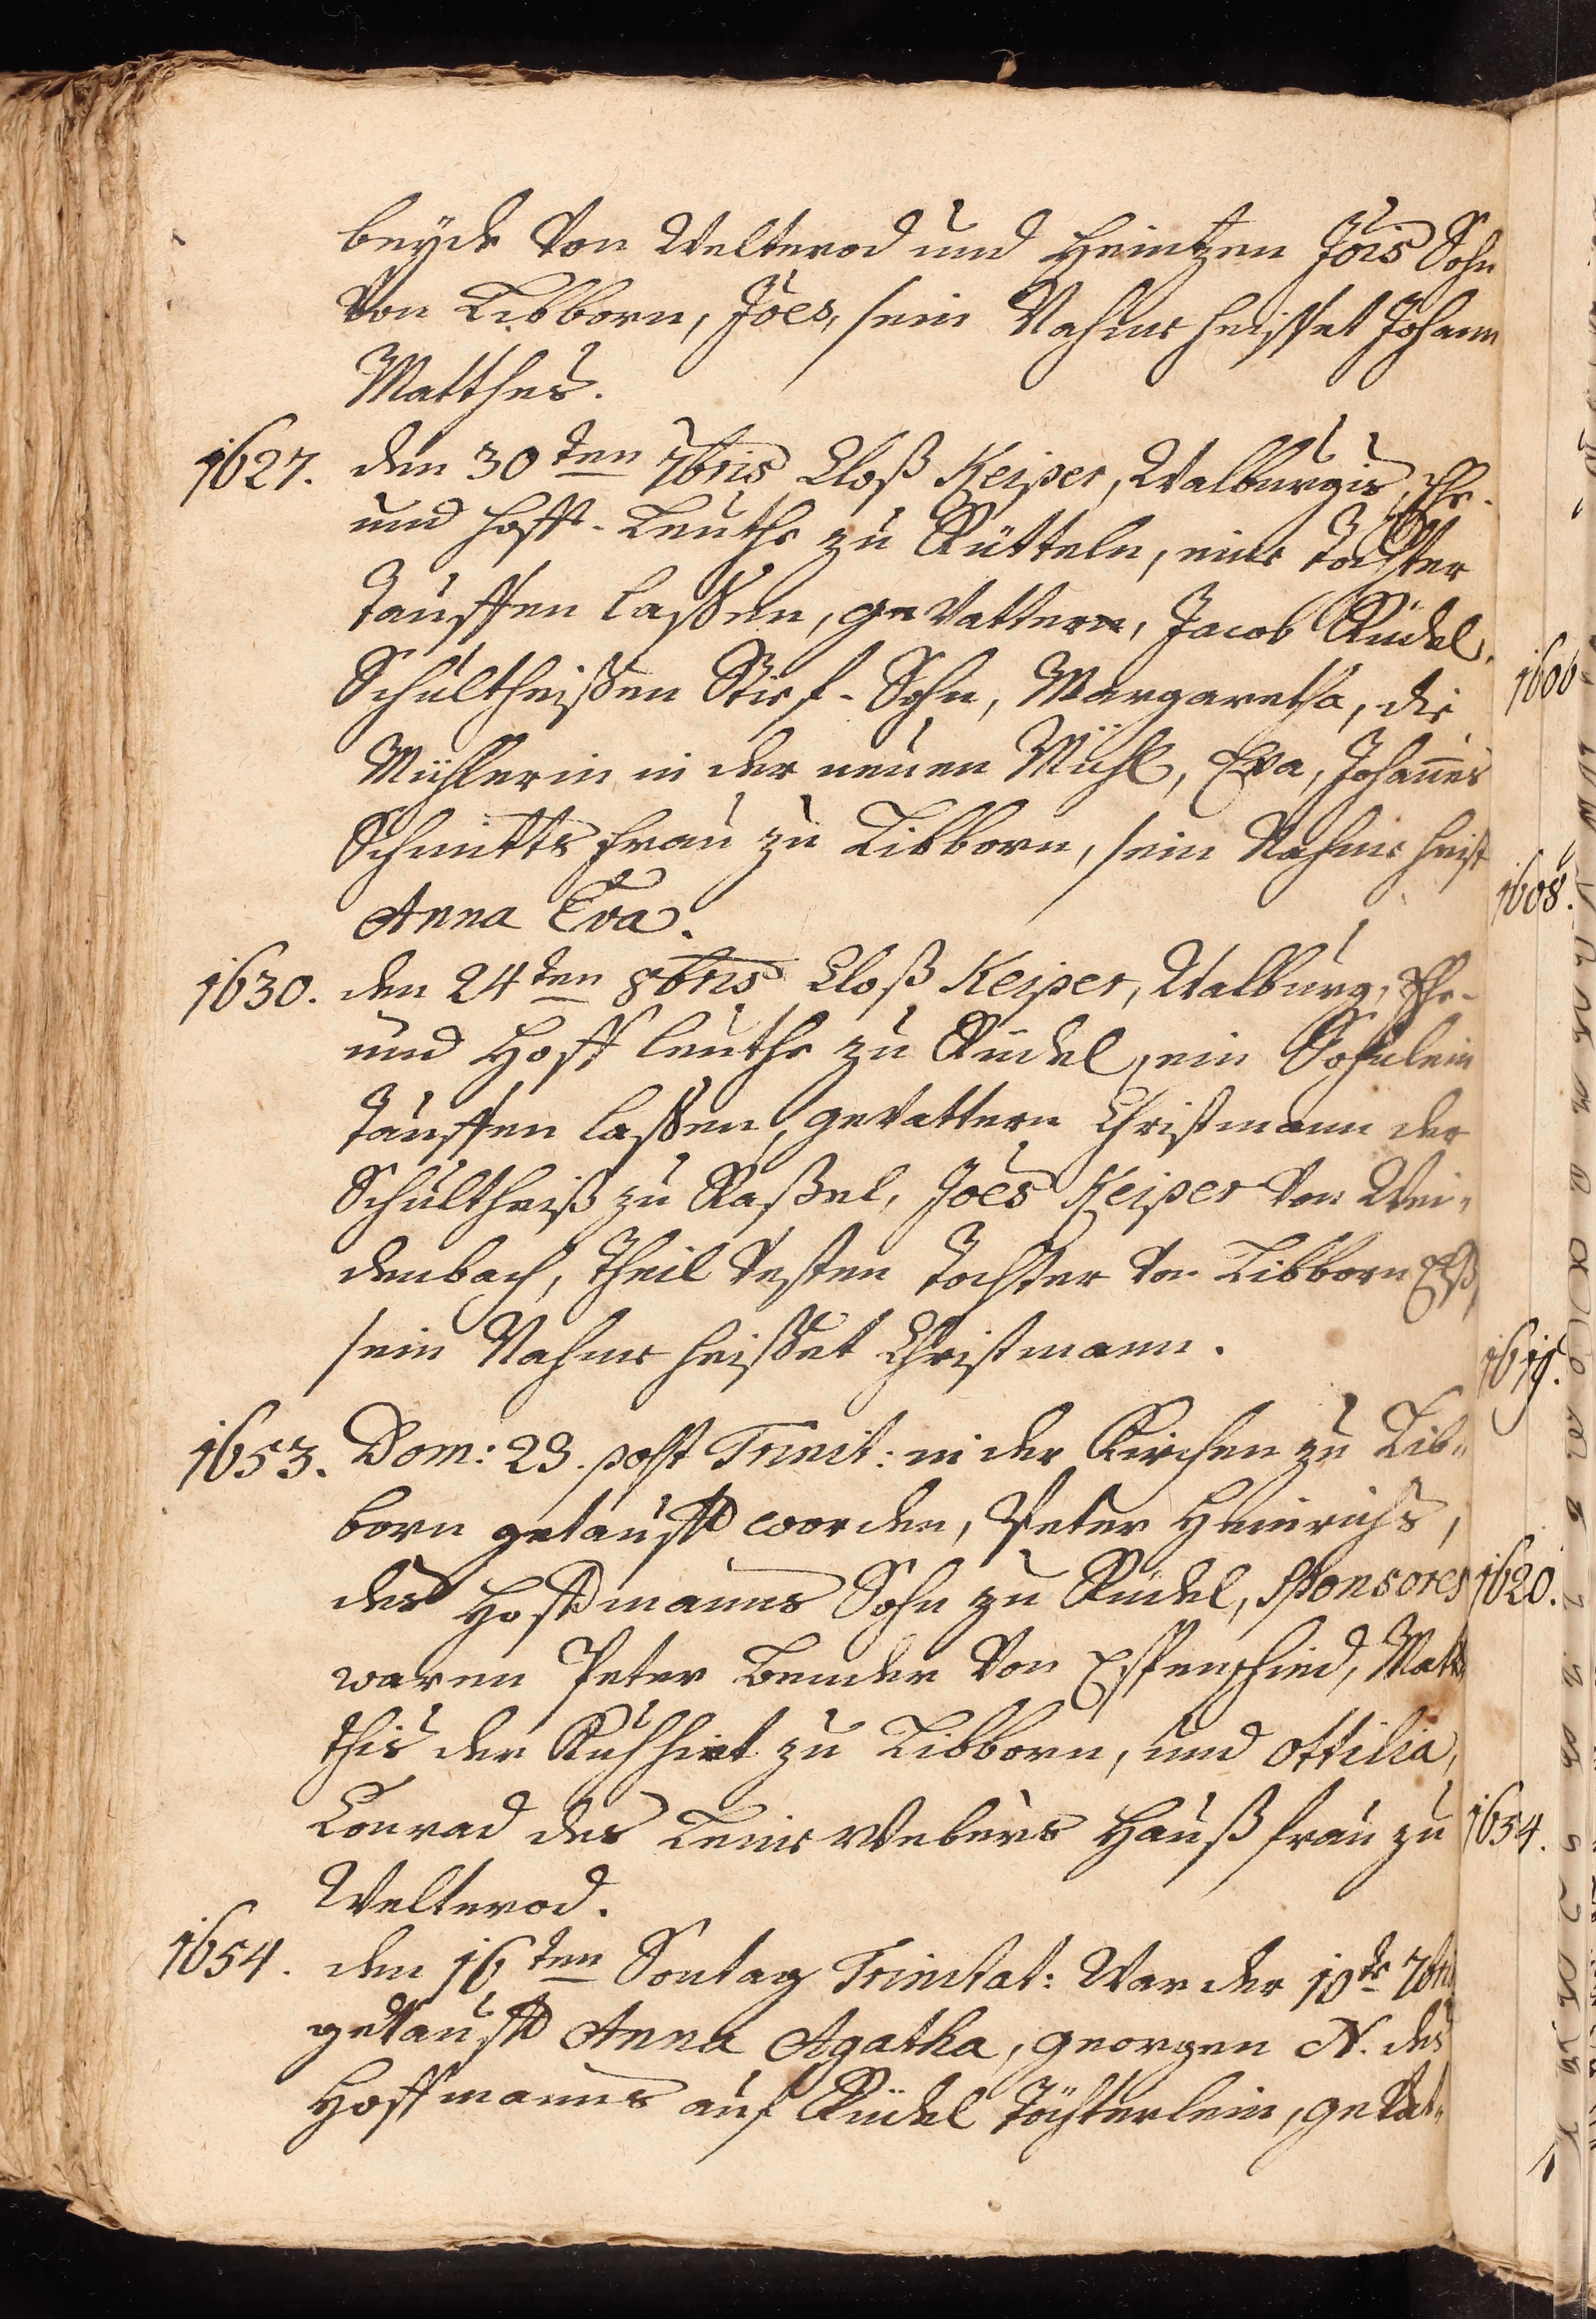 beÿde von Welterod und Heintzen Jois Sohn
von Libborn, Joes, sein Nahme heisset Johann
Matthes.
1627. den 30ten 7bris Cloß Keiper, Walburgis, Ehe-
und Hoffs-Leuthe zu Rütteln, eine Tochter
tauffen lassen, gevattern, Jacob Rüdel,
Schultheißen Stief-Sohn, Margaretha, die
Mühlerin in der neuen Mühl, Eva, Johannes
Schmitts Frau zu Libborn, sein Nahme heist
Anna Eva.
1630. den 24ten 8bris Cloß Keiper, Walburg, Ehe-
und Hoff leuthe zu Rüdel, ein Sohnlein
tauffen lassen, gevattern Christmann der
Schultheiß zu Raßel, Joes Keiper von Wei„
denbach, Theil Vesten Tochter von Libborn Elß,
sein Nahme heisset Christmann.
1653. Dom: 23. post Trinit: in der Kirchen zu Lib„
born getaufft worden, Peter Heinrichs,
des Hoffmanns Sohn zu Rüdel, Sponsores
waren Peter Bender von Espenschied, Mat„
this der Kuhhirt zu Libborn, und Ottilia,
Conrad des Leine Webers Hauß frau zu
Welterod.
1654. den 16ten Sontag Trinitat: War der 10te 7bris
getaufft Anna Agatha, georgen N. des
Hoffmanns auf Rüdel Töchterlein, gevat„
1606
1608.
1619.
1620.
1654.